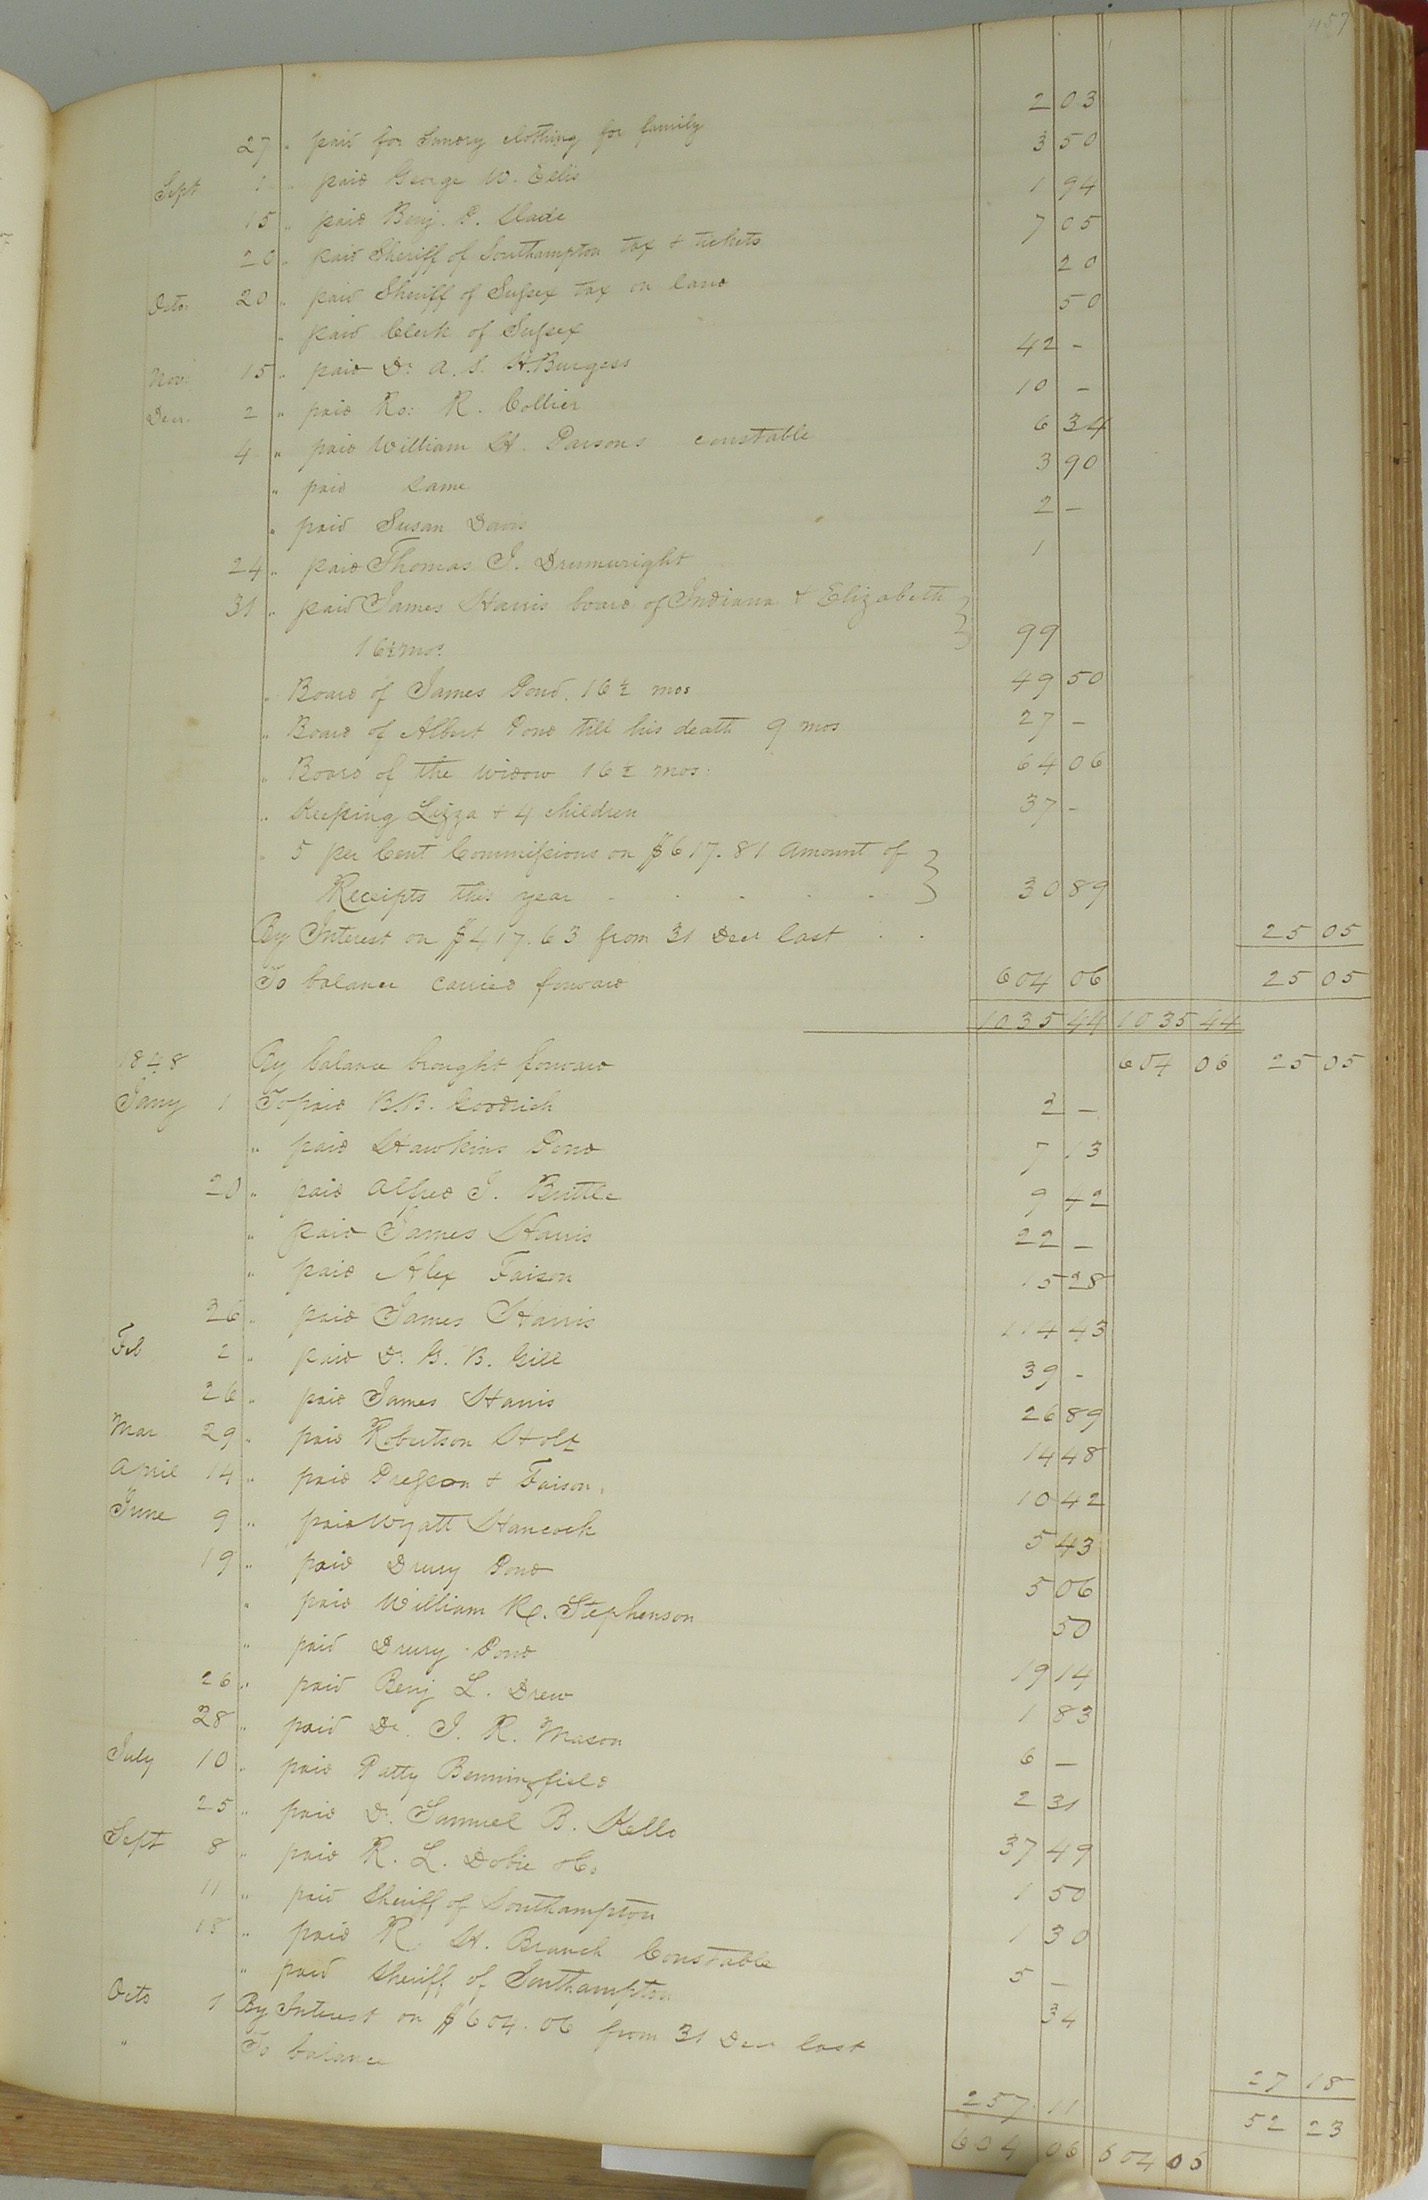 457
2 03
27 " paid for Sundry clothing for family 3 50
Sept 1 " paid George W. Ellis 1 94
15 " paid Benj. P. Slade 7 05
20 " paid Sheriff of Southampton tax & tickets 20
Octo: 20 " paid Sheriff of Sussex tax on land 50
" paid Clerk of Sussex
Nov: 15 " paid Dr A. S. H. Burgess 42 -
Decr. 2 " paid Ro: R. Collier 10 -
4 " paid William H. Parsons constable 6 34
" paid Same 3 90
" paid Susan Davis 2 -
24 " paid Thomas J. Drumwright 1
31 " paid James Harris board of Indiana & Elizabeth }
16½ mos: } 99
" Board of James Pond. 16½ mos 49 50
" Board of Albert Pond till his death 9 mos 27 -
" Board of the widow 16½ mos: 64 06
" Keeping Lizza & 4 children 37 -
" 5 per Cent Commissions on $617.81 Amount of }
Receipts this year } 30 89
By Interest on $417.63 from 31 Decr last 25 05
To balance carried forward 604 06 25 05
1035 44 1035 44
1848 By balance brought forward 604 06 25 05
Jany 1 To paid B.B. Goodrich 2 -
" paid Hawkins Pond 5 13
20 " paid Alfred J. Brittle 9 42
" paid James Harris 22 -
" paid Alex Faison 15 28
26 " paid James Harris 114 43
Feb 2 " paid Dr G. B. Gill 39 -
26 " paid James Harris 26 89
Mar 29 " paid Robertson Holt 14 48
April 14 " paid Presson & Faison. 10 42
June 9 " paid Wyatt Hancock 5 43
19 " paid Drury Pond 5 06
" paid William R. Stephenson 50
" paid Drury Pond 19 14
26 " paid Benj L. Drew 1 83
28 " paid Dr. J. R. Mason 6 -
July 10 " paid Patty Benningfield 2 31
25 " paid Dr Samuel B. Kello 37 49
Sept 8 " paid R. L. Dobie &Co 1 50
11 " paid Sheriff of Southampton 1 30
18 " paid R. H. Branch Constable 5 -
" paid Sheriff of Southampton 34
Octo 1 By Interest on $604.06 from 31 Decr last 27 18
" To balance 257 11 52 23
604 06 604 06